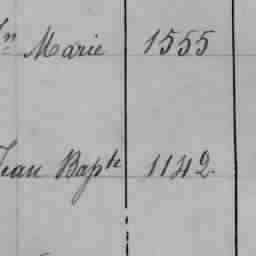 Jn Marie 1555
Jean Bapte 1142.